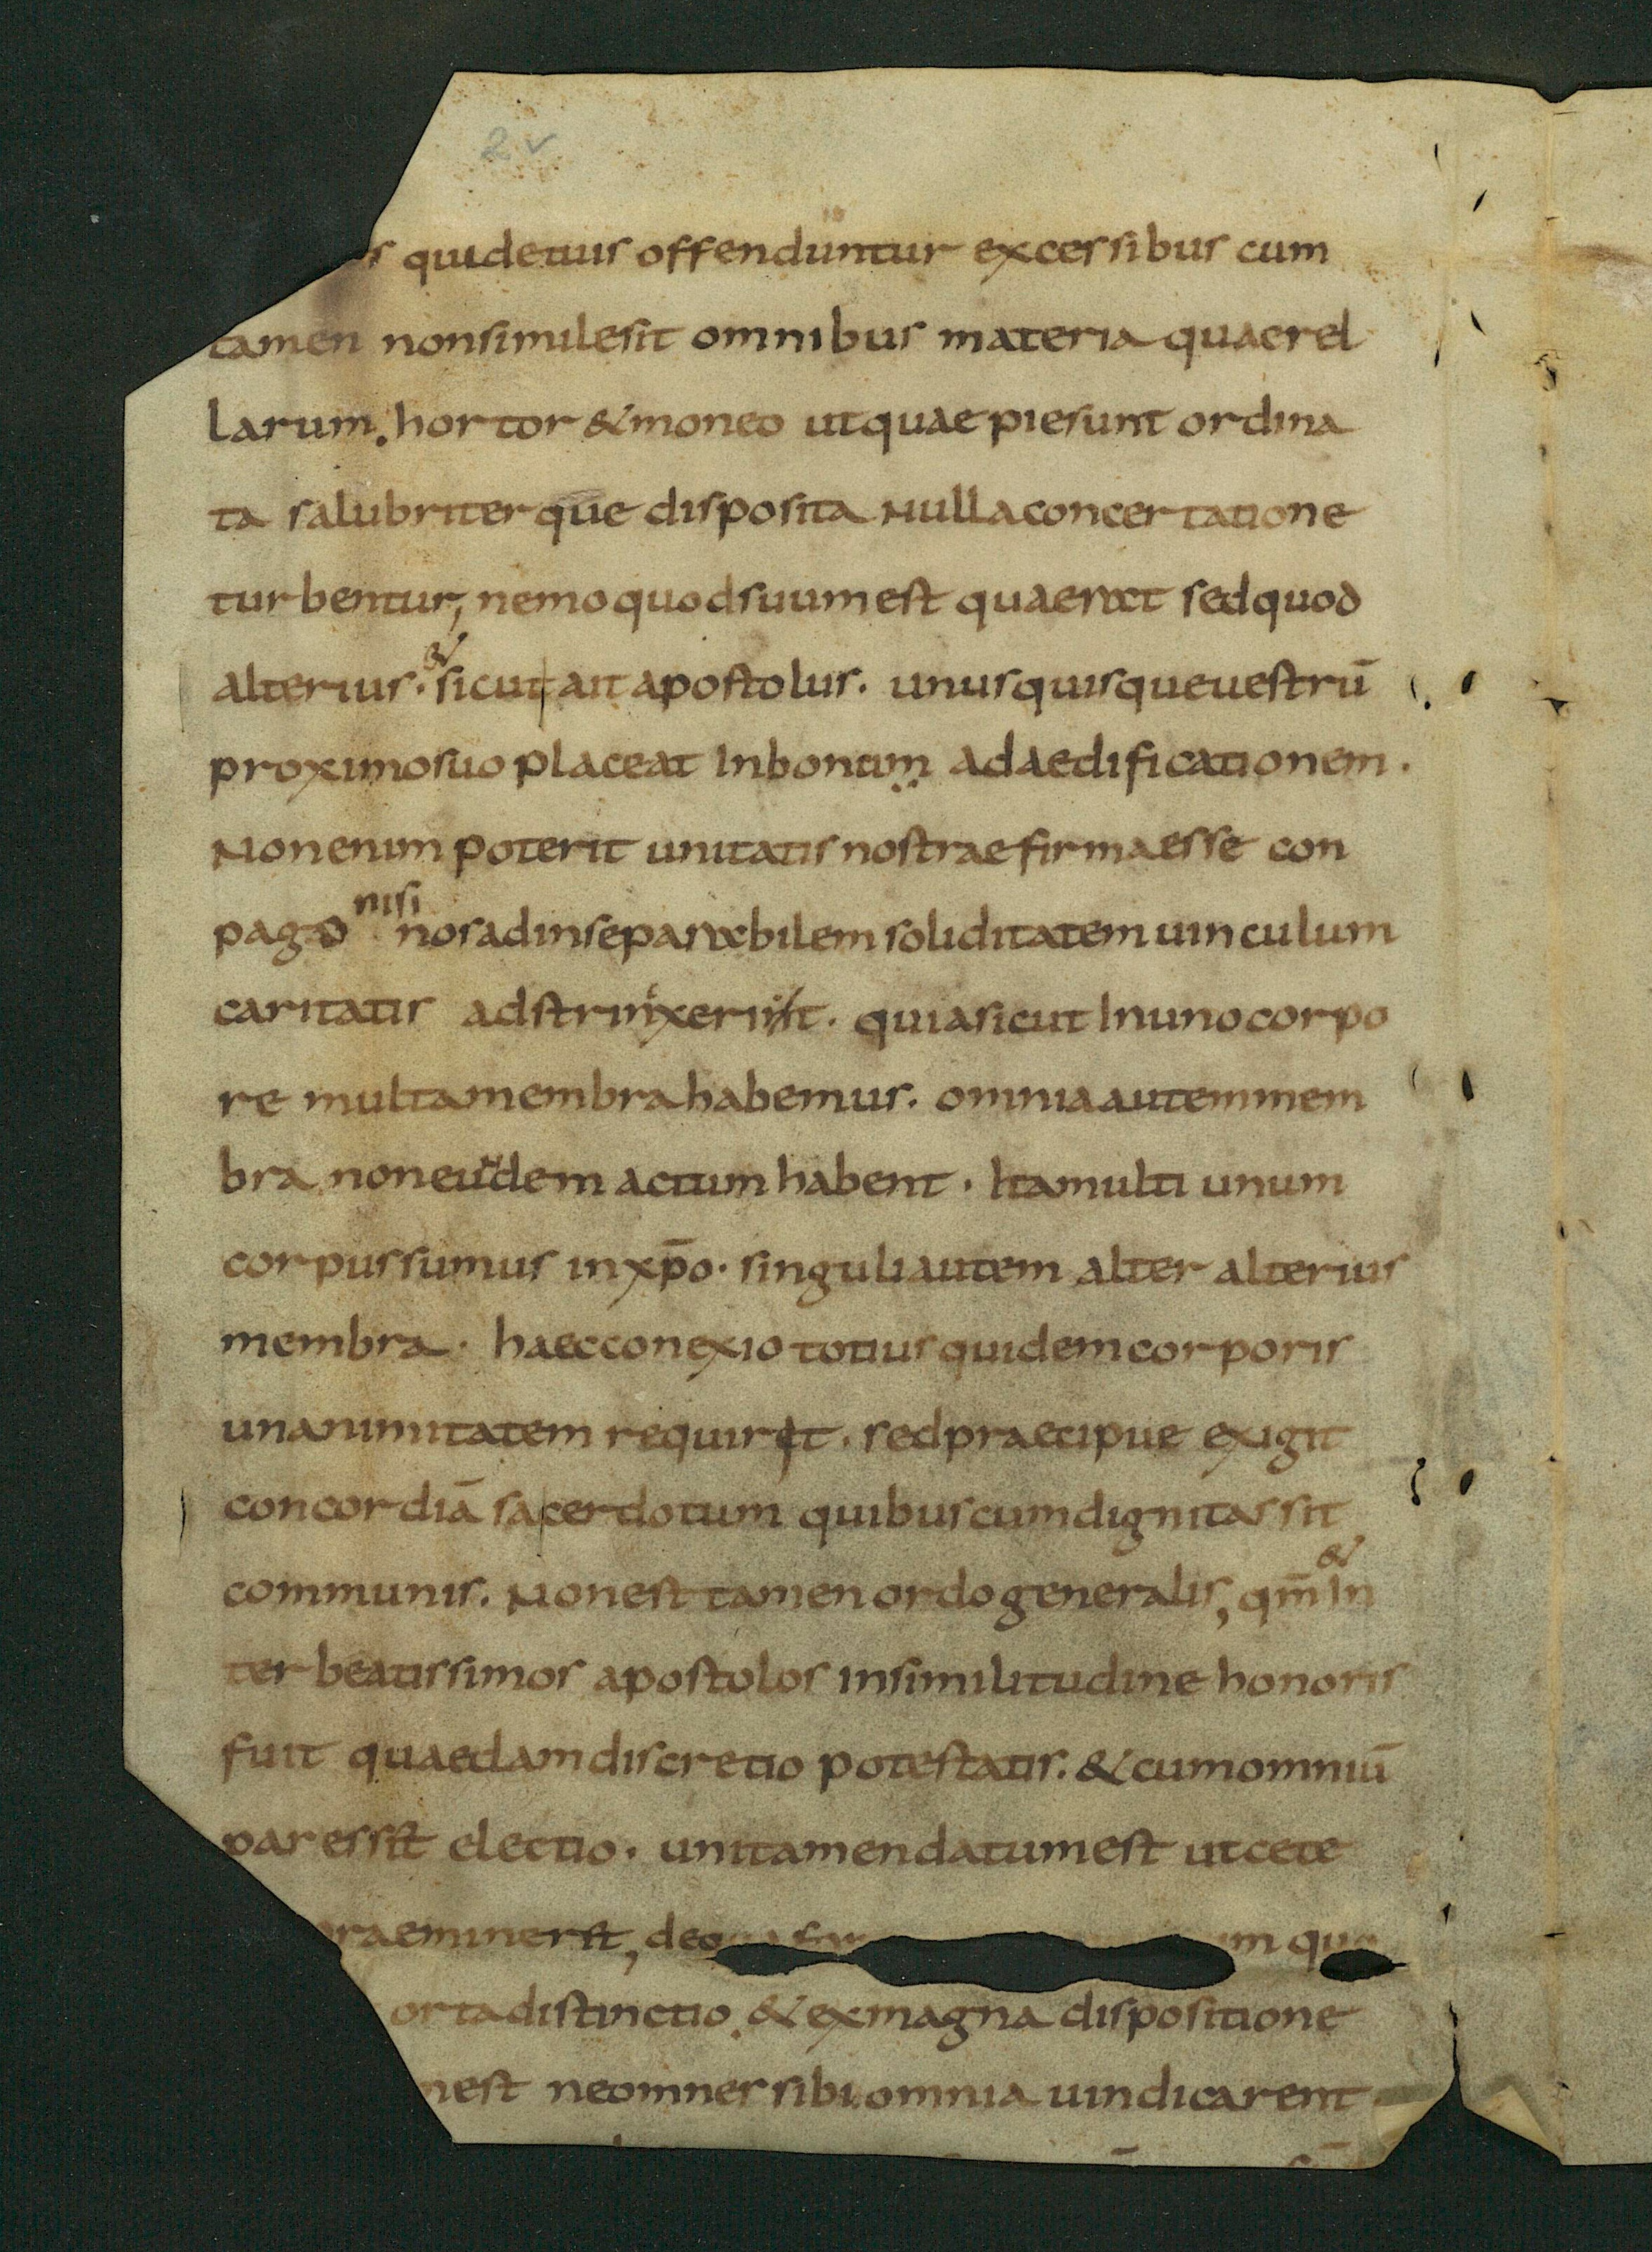 2v
qui de tuis offenduntur excessibus cum
tamen non simile sit omnibus materia quaerel
larum. hortor & moneo ut quae pie sunt ordina
ta salubriterque disposita nulla concertatione
turbentur, nemo quod suum est quaerat sed quod
alterius. & sicut ait apostolus. unusquisque uestrū
proximo suo placeat in bonum ad aedificationem.
Non enim poterit unitatis nostrae firma esse con
pago nisi nos ad inseparabilem soliditatem uinculum
caritatis adstrinxerit. quia sicut in uno corpo
re multa membra habemus. omnia autem mem
bra non eundem actum habent. Ita multi unum
corpus sumus in xp̄o. singuli autem alter alterius
membra. haec conexio totius quidem corporis
unanimitatem requirit. sed praecipue exigit
concordiā sacerdotum quibus cum dignitas sit
communis. Non est tamen ordo generalis, qm̄ & in
ter beatissimos apostolos in similitudine honoris
fuit quaedam discretio potestatis. & cum omniū
par essit electio. uni tamen datum est ut cete
raeminerit, de
orta distinctio. & ex magna dispositione
est ne omnes sibi omnia uindicarent